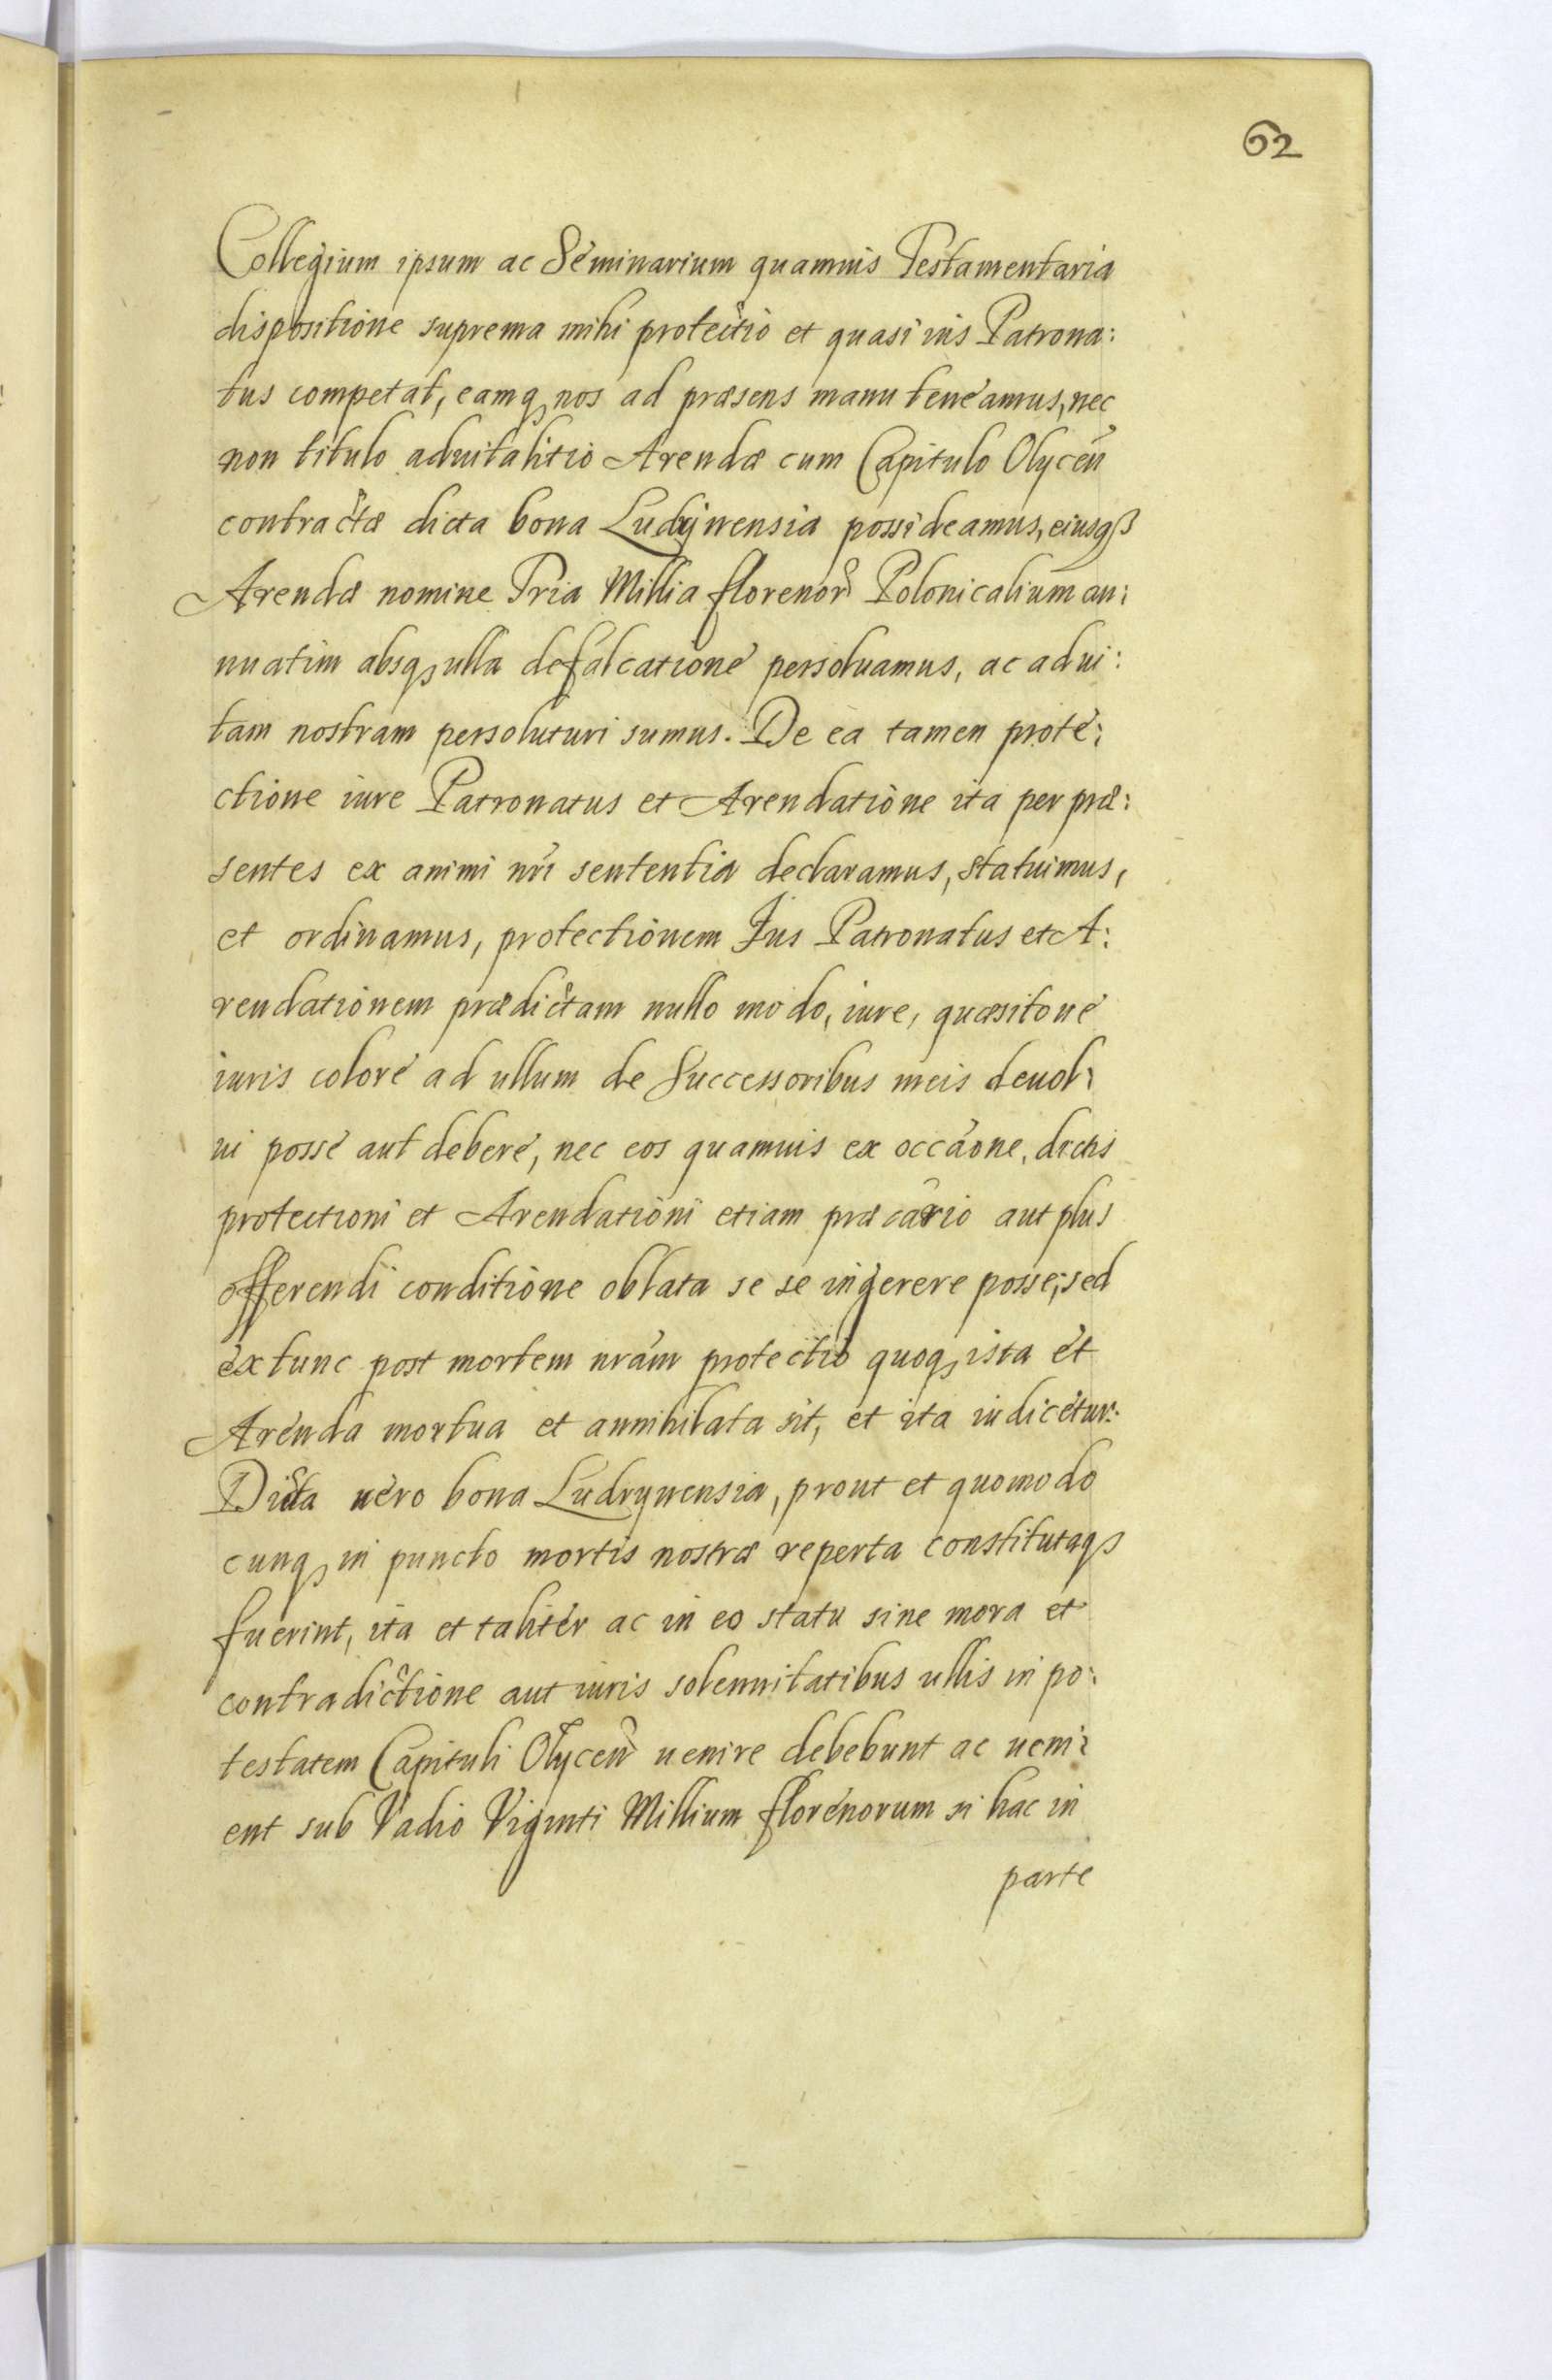 62
Collegium ipsum ac Seminarium quamuis Testamentaria
dispositione suprema mihi protectio et quasi ius Patrona:
tus competat, eamq, nos ad præsens manu teneamus, nec
non titulo aduitalitio Arendæ cum Capitulo Olyceñ
contractæ dicta bona Ludywensia possideamus, eiusqȝ
Arendæ nomine Tria Millia florenor Polonicalium an:
nuatim absq, ulla defalcatione persoluamus, ac ad ui:
tam nostram persoluturi sumus. De ea tamen prote:
ctione iure Patronatus et Arendatione ita per præ:
sentes ex animi nri sententia declaramus, statuimus,
et ordinamus, protectionem Jus Patronatus et A:
rendationem prædictam nullo modo, iure, quæsitoue
iuris colore ad ullum de Successoribus meis deuol:
ui posse aut debere, nec eos quamuis ex occãone, dictis
protectioni et Arendationi etiam præcario aut plus
offerendi conditione oblata se se ingerere posse; sed
ex tunc post mortem nrãm protectio quoq, ista et
Arenda mortua et annihilata sit, et ita iudicetur.
Dicta uero bona Ludrywensia, prout et quomodo
cunq, in puncto mortis nostræ reperta constitutaqȝ
fuerint, ita et taliter ac in eo statu sine mora et
contradictione aut iuris solennitatibus ullis in po:
testatem Capituli Olyceñ uenire debebunt ac ueni:
ent sub Vadio Viginti Millium florenorum si hac in
parte